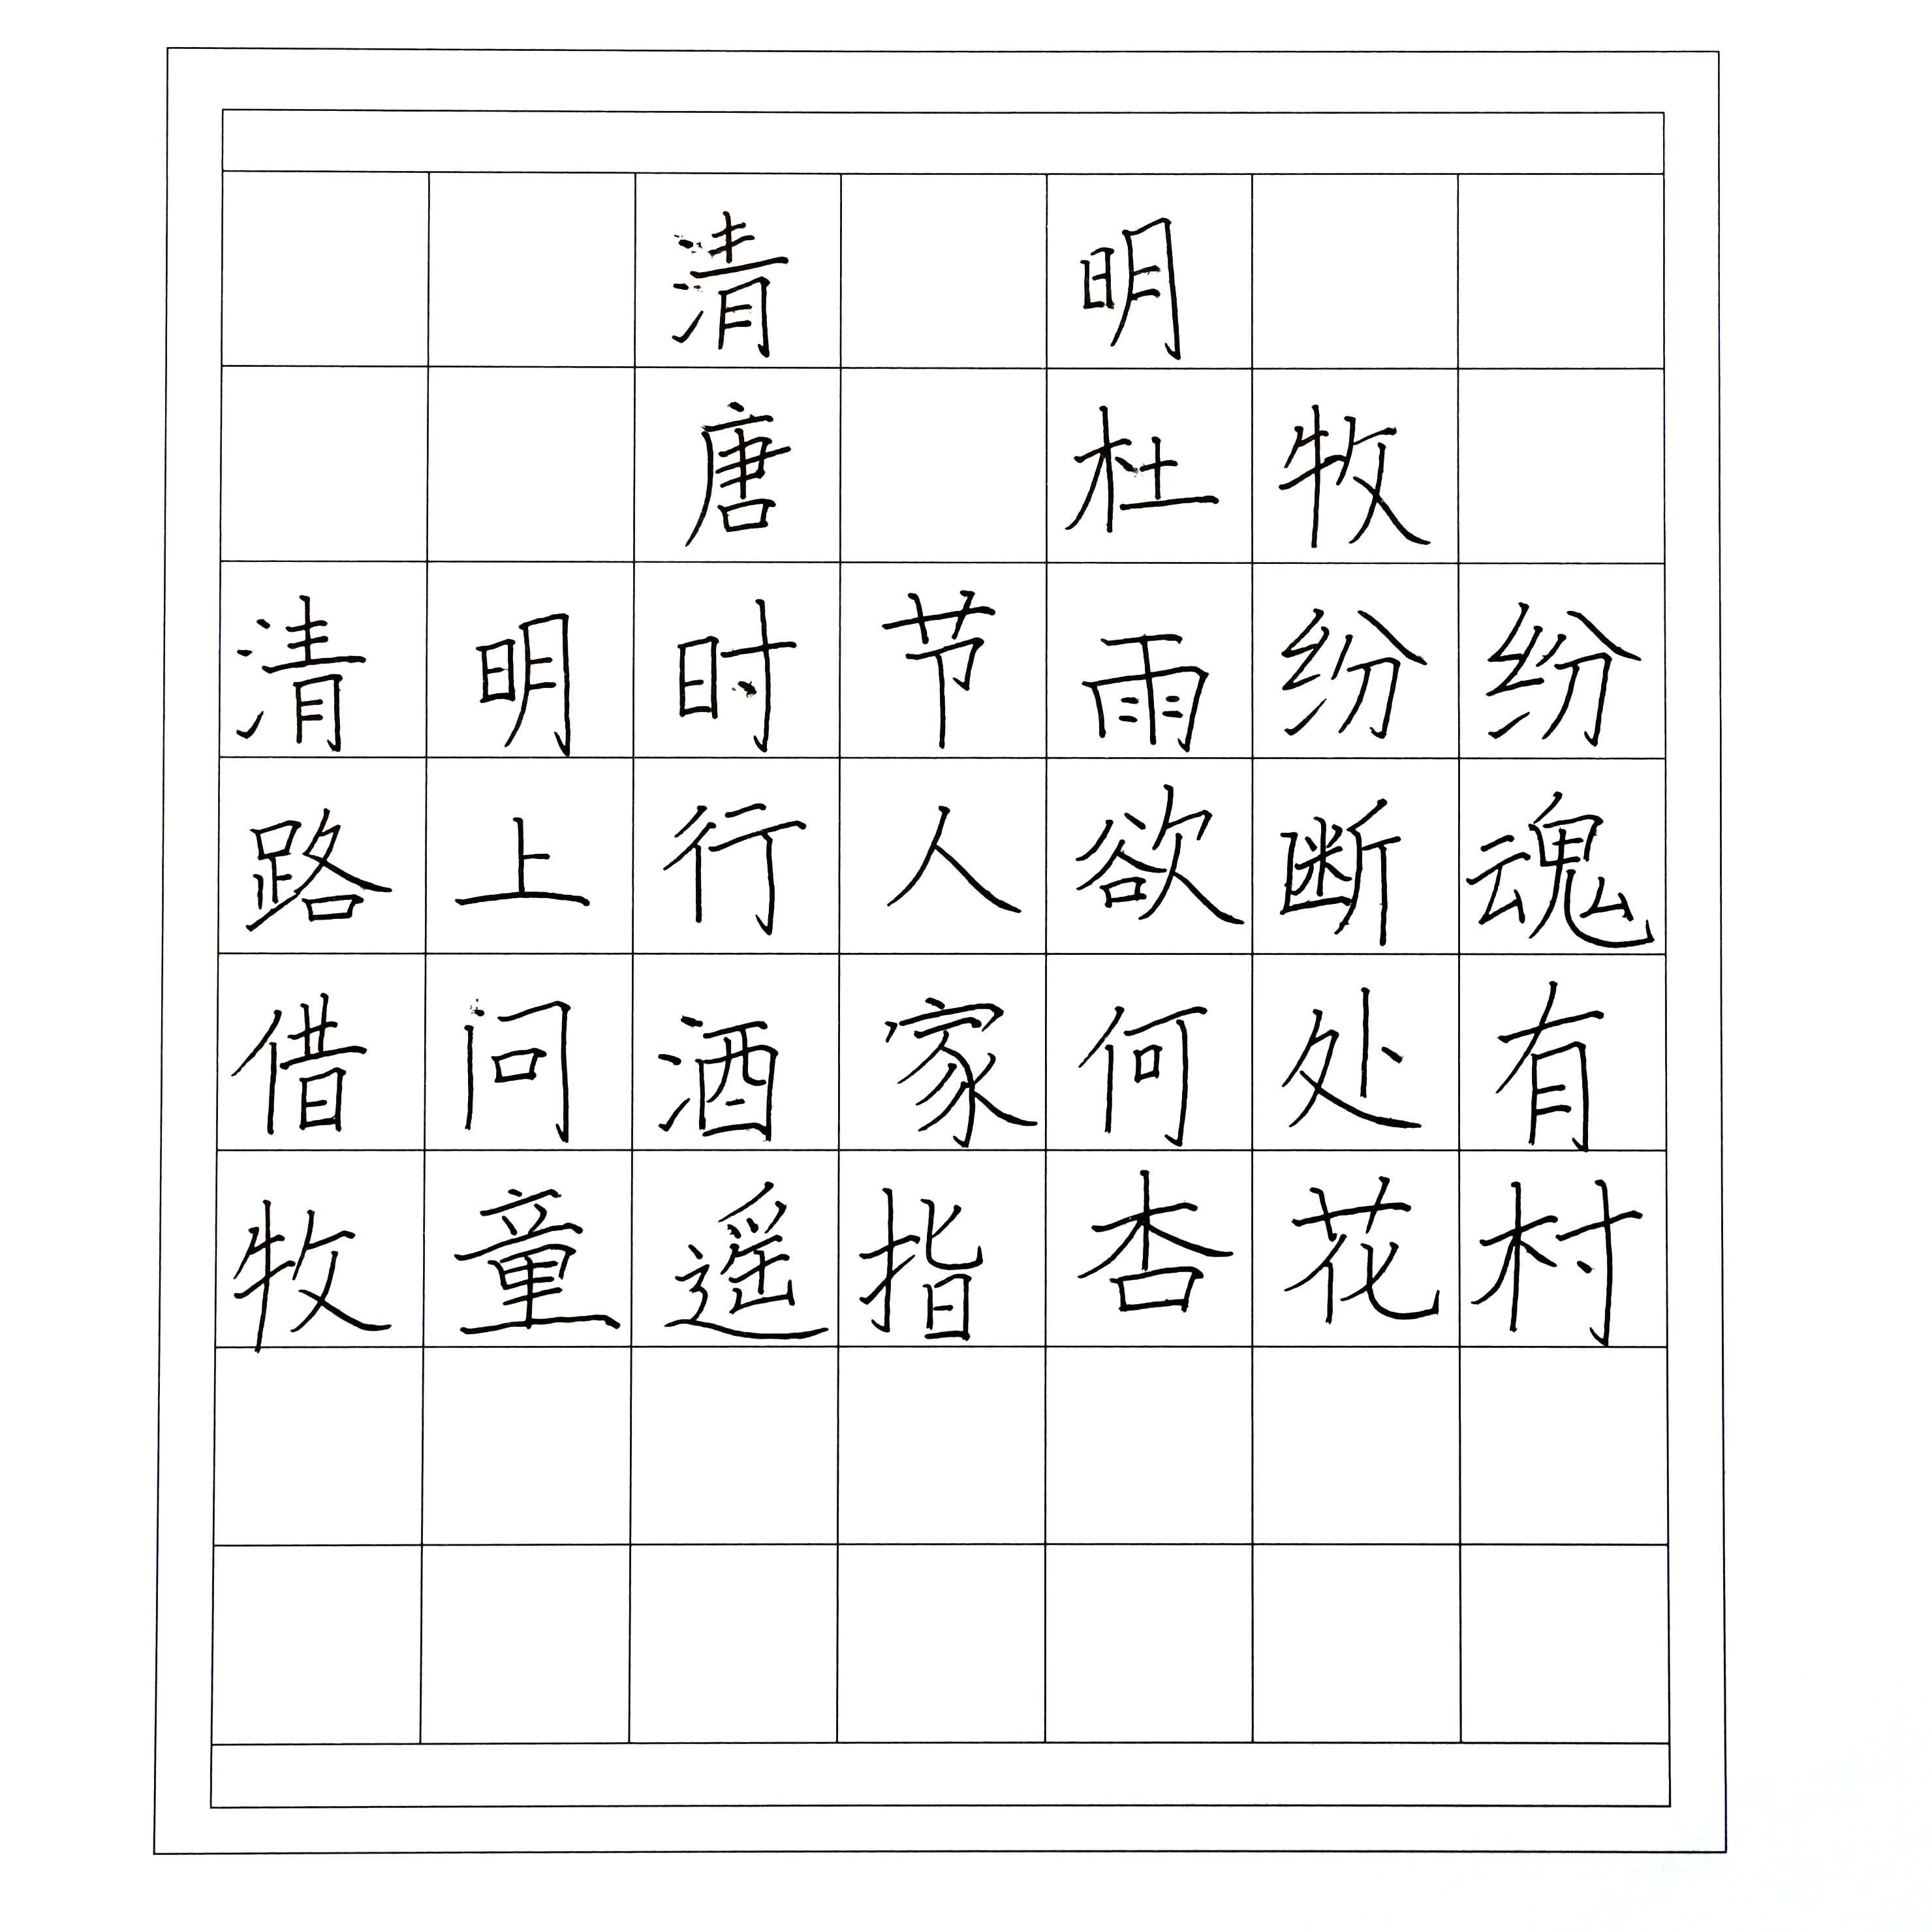 清明
唐 杜牧
清明时节雨纷纷
路上行人欲断魂
借问酒家何处有
牧童遥指杏花村